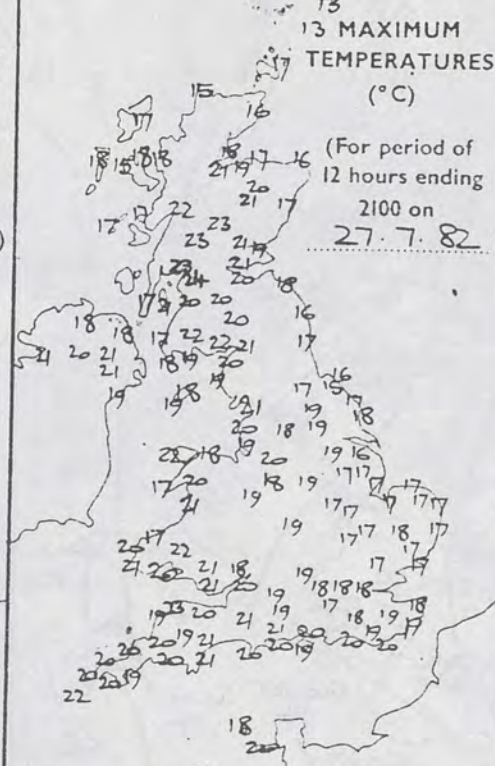 13
13 MAXIMUM
TEMPERATURES
(°C)
(For period of
12 hours ending
2100 on
27.7.82
17
15
16
17
18 15 18 18
18 17 16
21 19
20
21 17
17 17 22
23
23
21 19
21
23
24 20 18
17 21 20 20
20 16
18 18 17 22 22 21 17
21 20 21 18 19 20
21
19 19 18 19
16
17 15 17
19 18
19 21
20 18 19
19 19 16
22 18 20 17 17
17 20 18 19 17 17
21 19 17 17 17 17
19 17 17 18 17
17 17
20 22
21 20 21 18 17 19
21 20 19
19 18 18 18
19 23 20 19 17 18
21 18 19
20 20 19 21 21 20 19 17
20 20 21 20 20 19 20 20
20 20 19
22
18
20